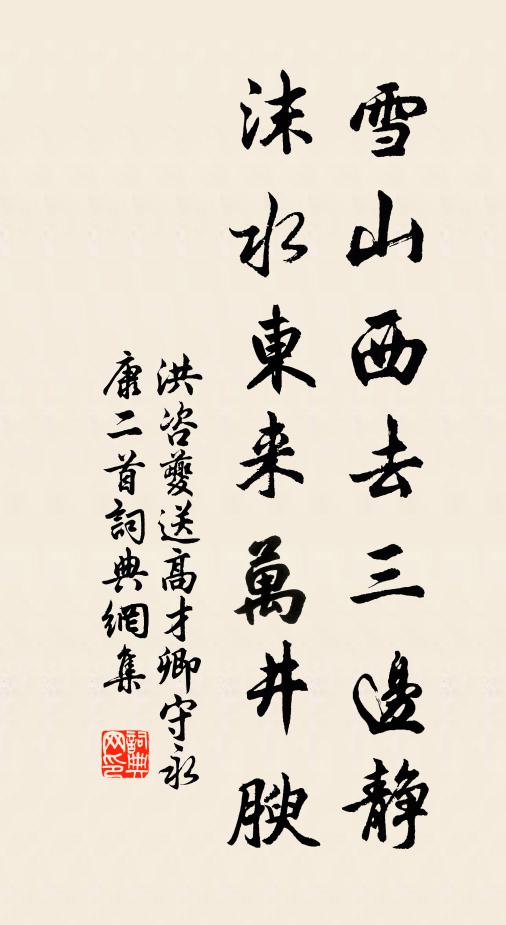 雪山西去三邊静
沫水東来萬井腴
洪咨夔送高才卿守永
康二首詞典網集
詞典网印